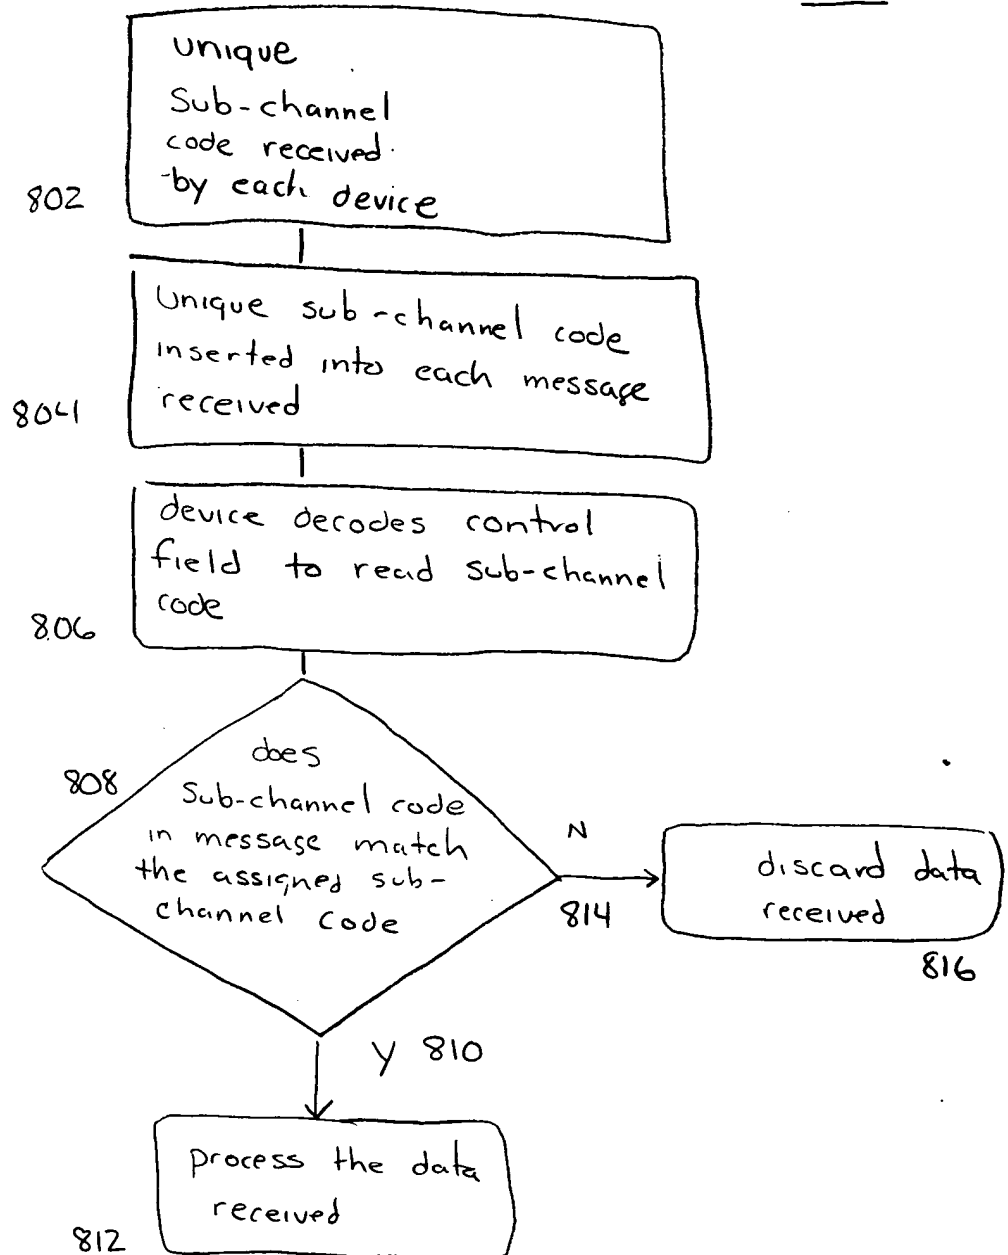 unique
Sub-channel
code received
by each device
802
Unique sub-channel code
inserted into each message
received
804
device decodes control
field to read sub-channel
code
806
808
does
Sub-channel code
in message match
the assigned sub-
channel code
N
814
discard data
received
816
Y 810
process the data
received
812